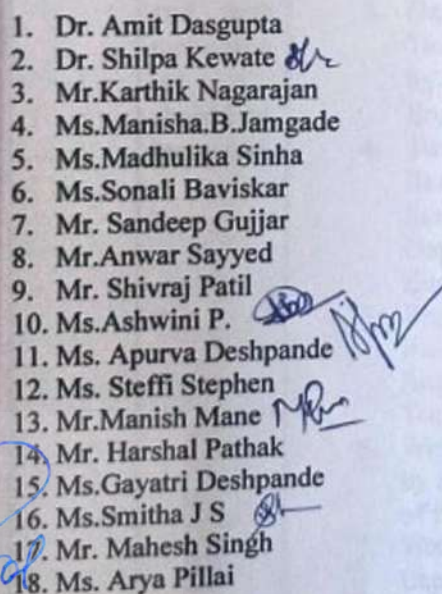 1. Dr. Amit Dasgupta
2. Dr. Shilpa Kewate
3. Mr.Karthik Nagarajan
4. Ms.Manisha.B.Jamgade
5. Ms.Madhulika Sinha
6. Ms.Sonali Baviskar
7. Mr. Sandeep Gujjar
8. Mr.Anwar Sayyed
9. Mr. Shivraj Patil
10. Ms.Ashwini P.
11. Ms. Apurva Deshpande
12. Ms. Steffi Stephen
13. Mr.Manish Mane
14. Mr. Harshal Pathak
15. Ms.Gayatri Deshpande
16. Ms.Smitha J S
17. Mr. Mahesh Singh
18. Ms. Arya Pillai